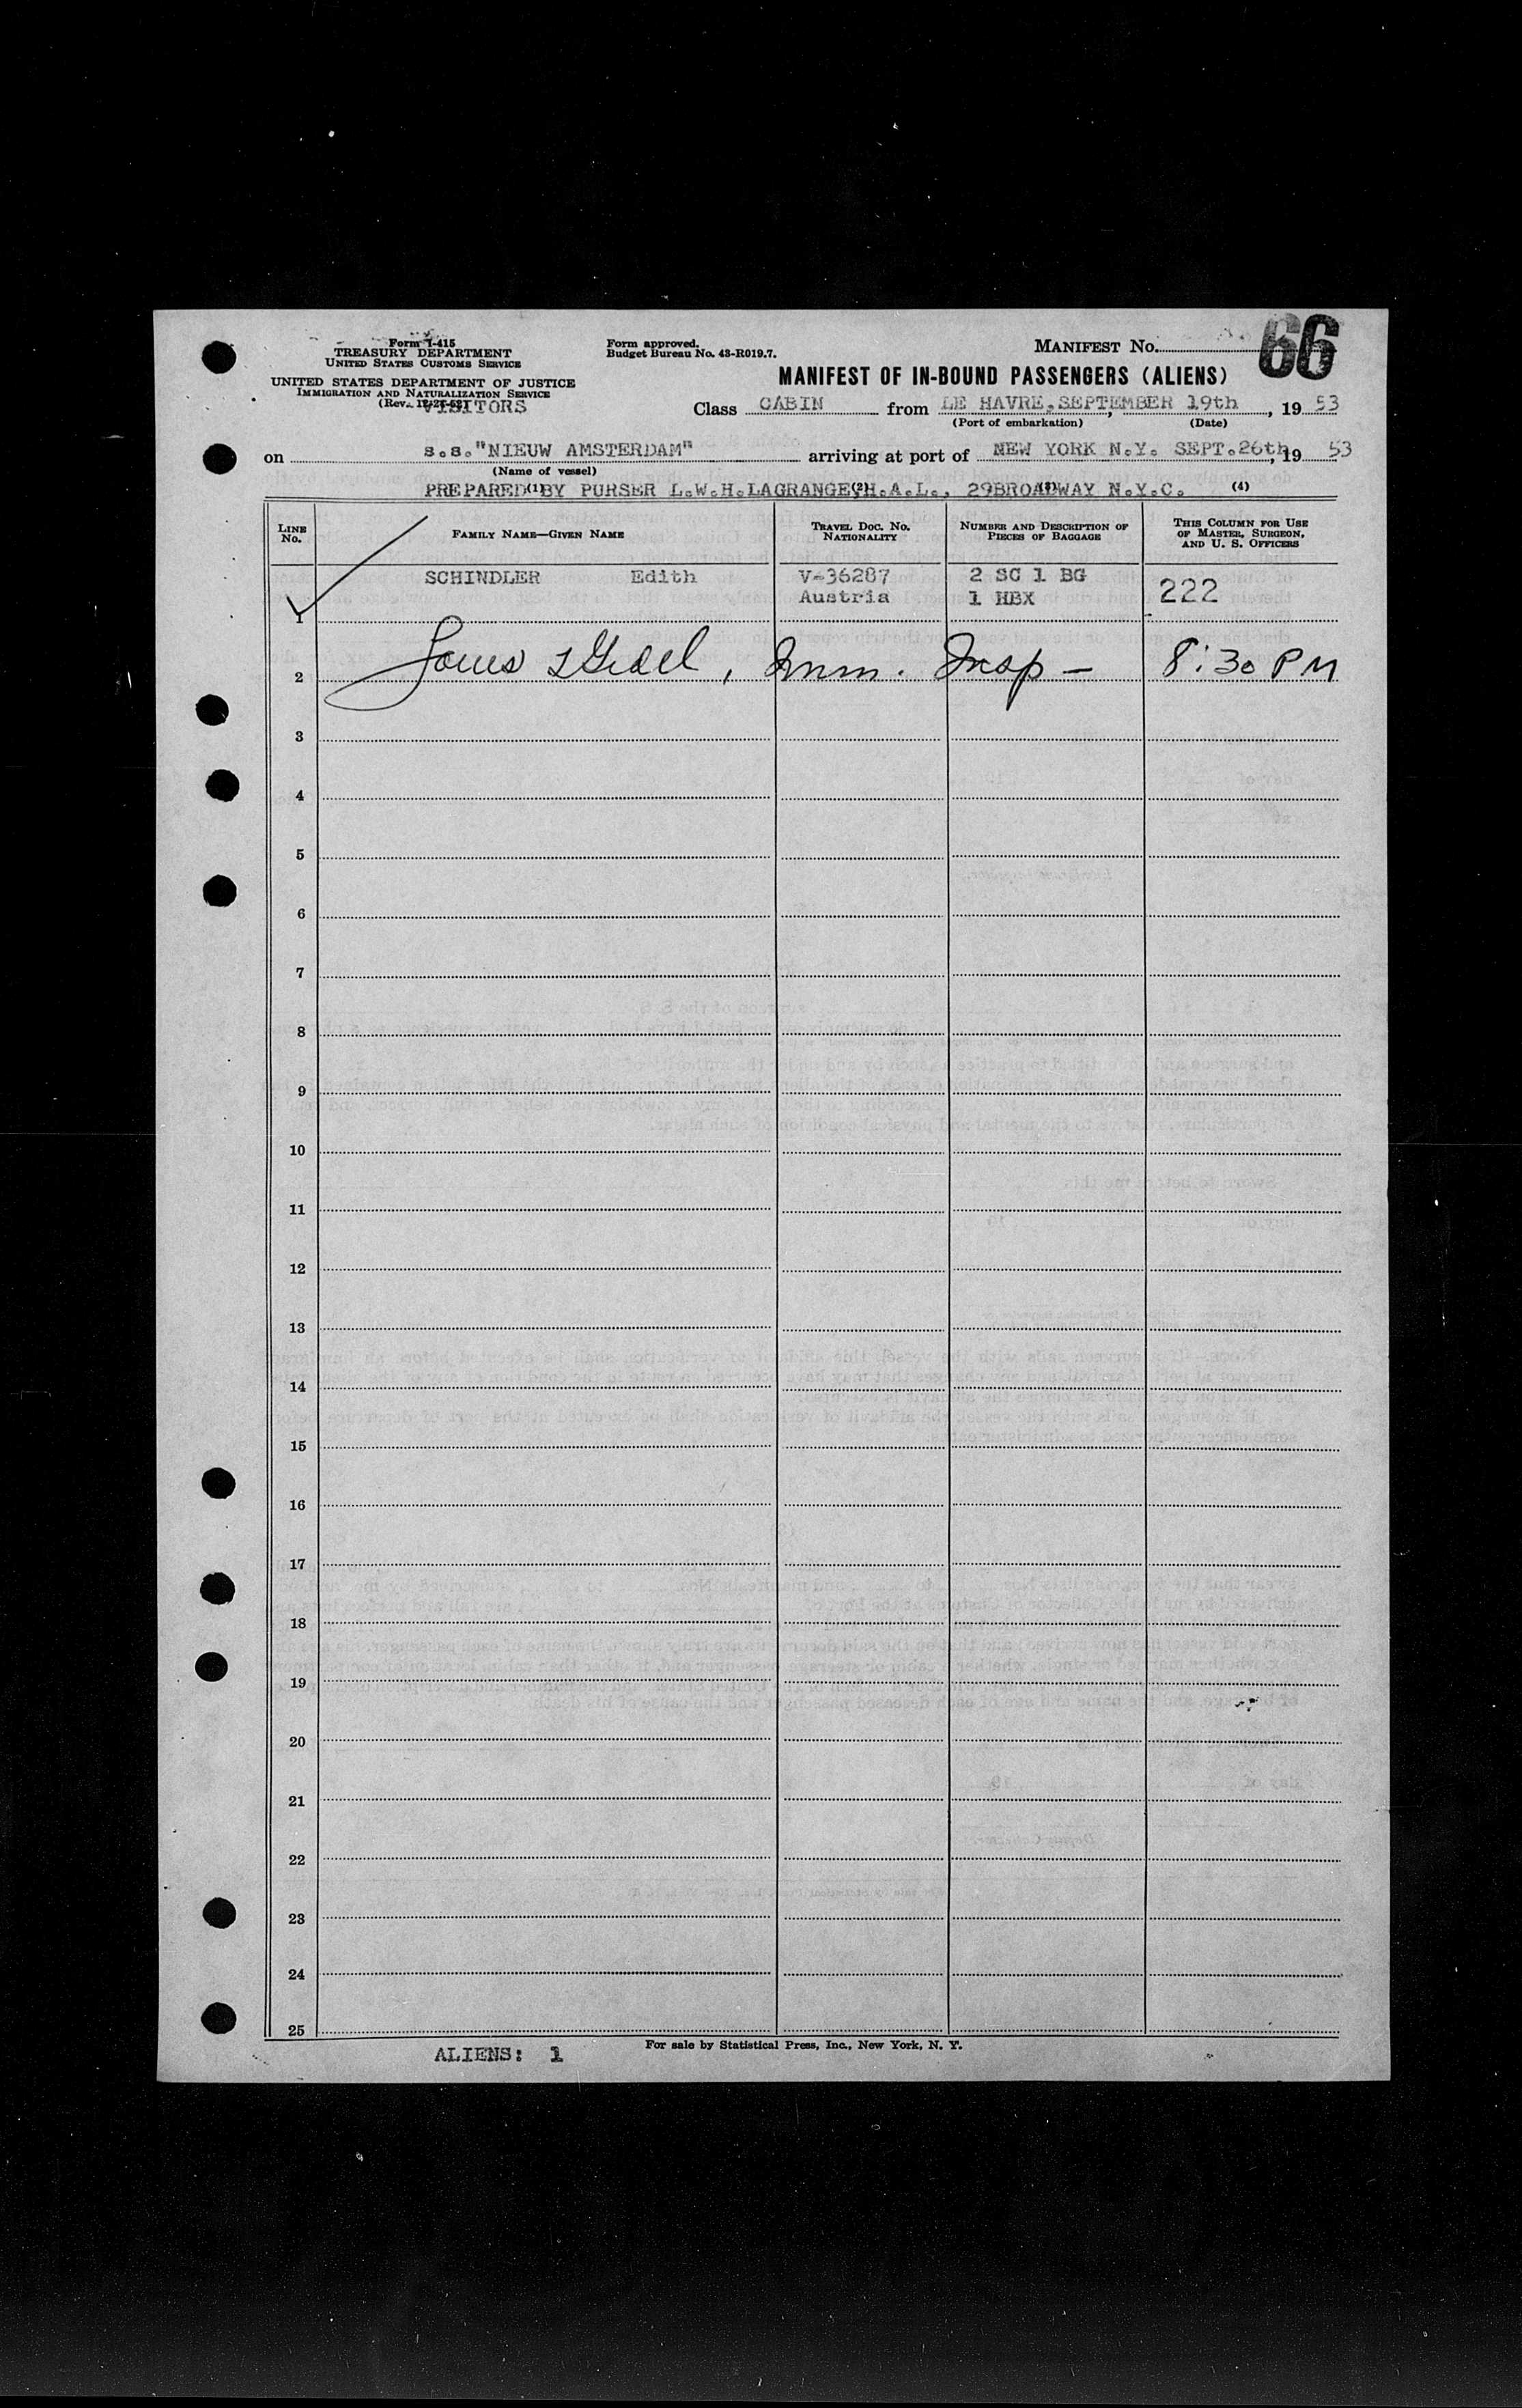 Form I-415
TREASURY DEPARTMENT
UNITED STATES CUSTOMS SERVICE
UNITED STATES DEPARTMENT OF JUSTICE
IMMIGRATION AND NATURALIZATION SERVICE
(Rev.
VISITORS
Form approved.
Budget Bureau No. 43-R019.7.
MANIFEST No. 66
MANIFEST OF IN-BOUND PASSENGERS (ALIENS)
Class CABIN from LE HAVRE, SEPTEMBER 19th, 19 53
(Port of embarkation) (Date)
on s.s."NIEUW AMSTERDAM" arriving at port of NEW YORK N.Y. SEPT.26th, 19 53
(Name of vessel)
PREPARED BY PURSER L.W.H.LAGRANGE, H.A.L., 29BROADWAY N.Y.C.
(1) (2) (3) (4)
LINE No. FAMILY NAME—GIVEN NAME TRAVEL DOC. NO. NATIONALITY NUMBER AND DESCRIPTION OF PIECES OF BAGGAGE THIS COLUMN FOR USE OF MASTER, SURGEON, AND U. S. OFFICERS
SCHINDLER Edith V-36287 2 SC 1 BG
1 Austria 1 HBX 222
2 Imm. Insp — 8:30 PM
3
4
5
6
7
8
9
10
11
12
13
14
15
16
17
18
19
20
21
22
23
24
25
For sale by Statistical Press, Inc., New York, N. Y.
ALIENS: 1